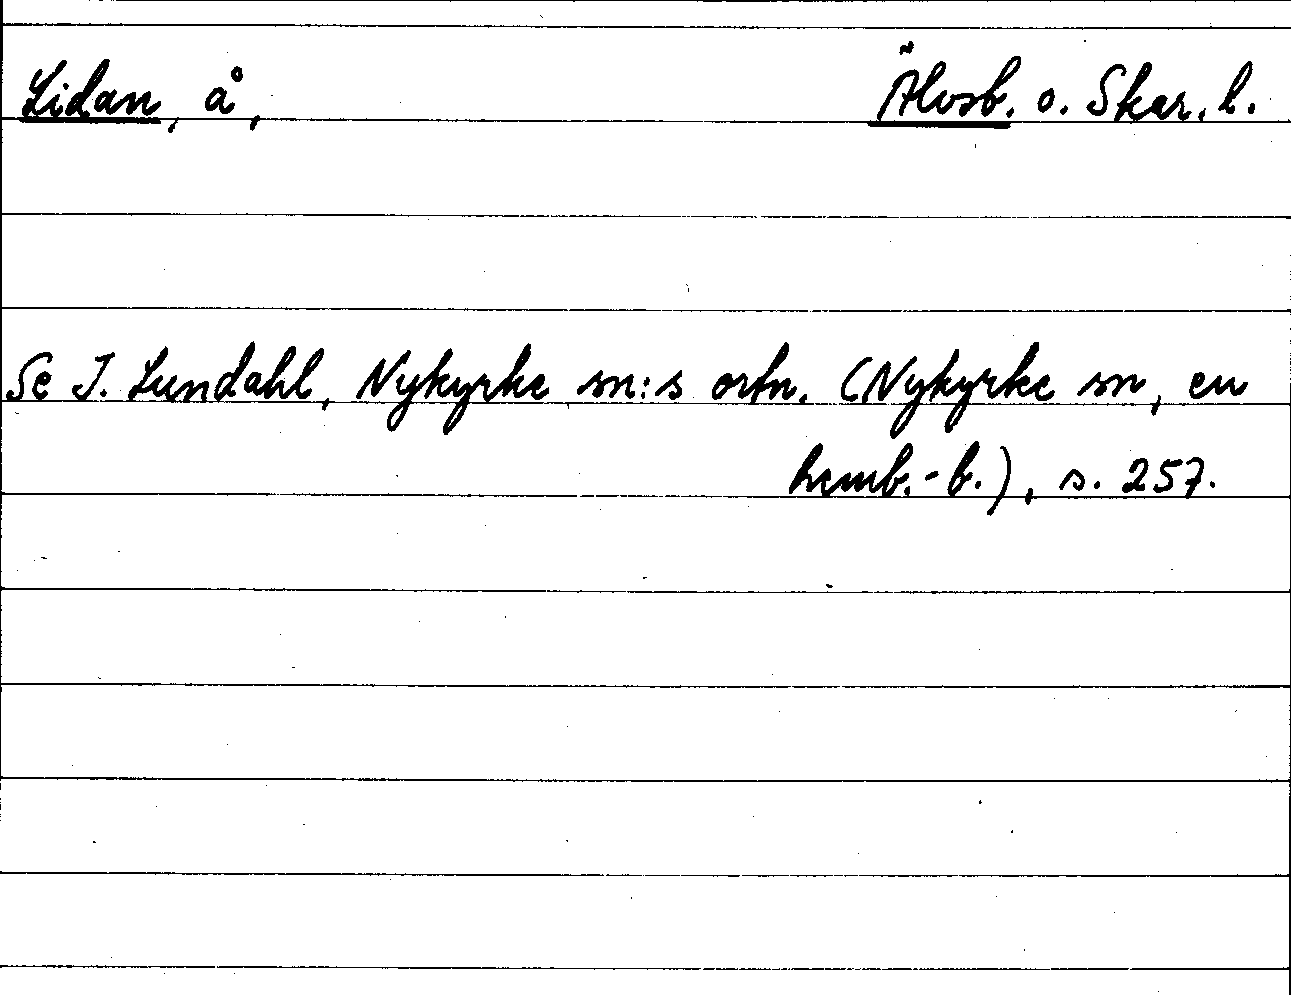 Lidan, å, Älvsb. o. Skar. l.
Se I. Lundahl, Nykyrke sn:s ortn. (Nykyrke sn, en
hemb.-b.), s. 257.